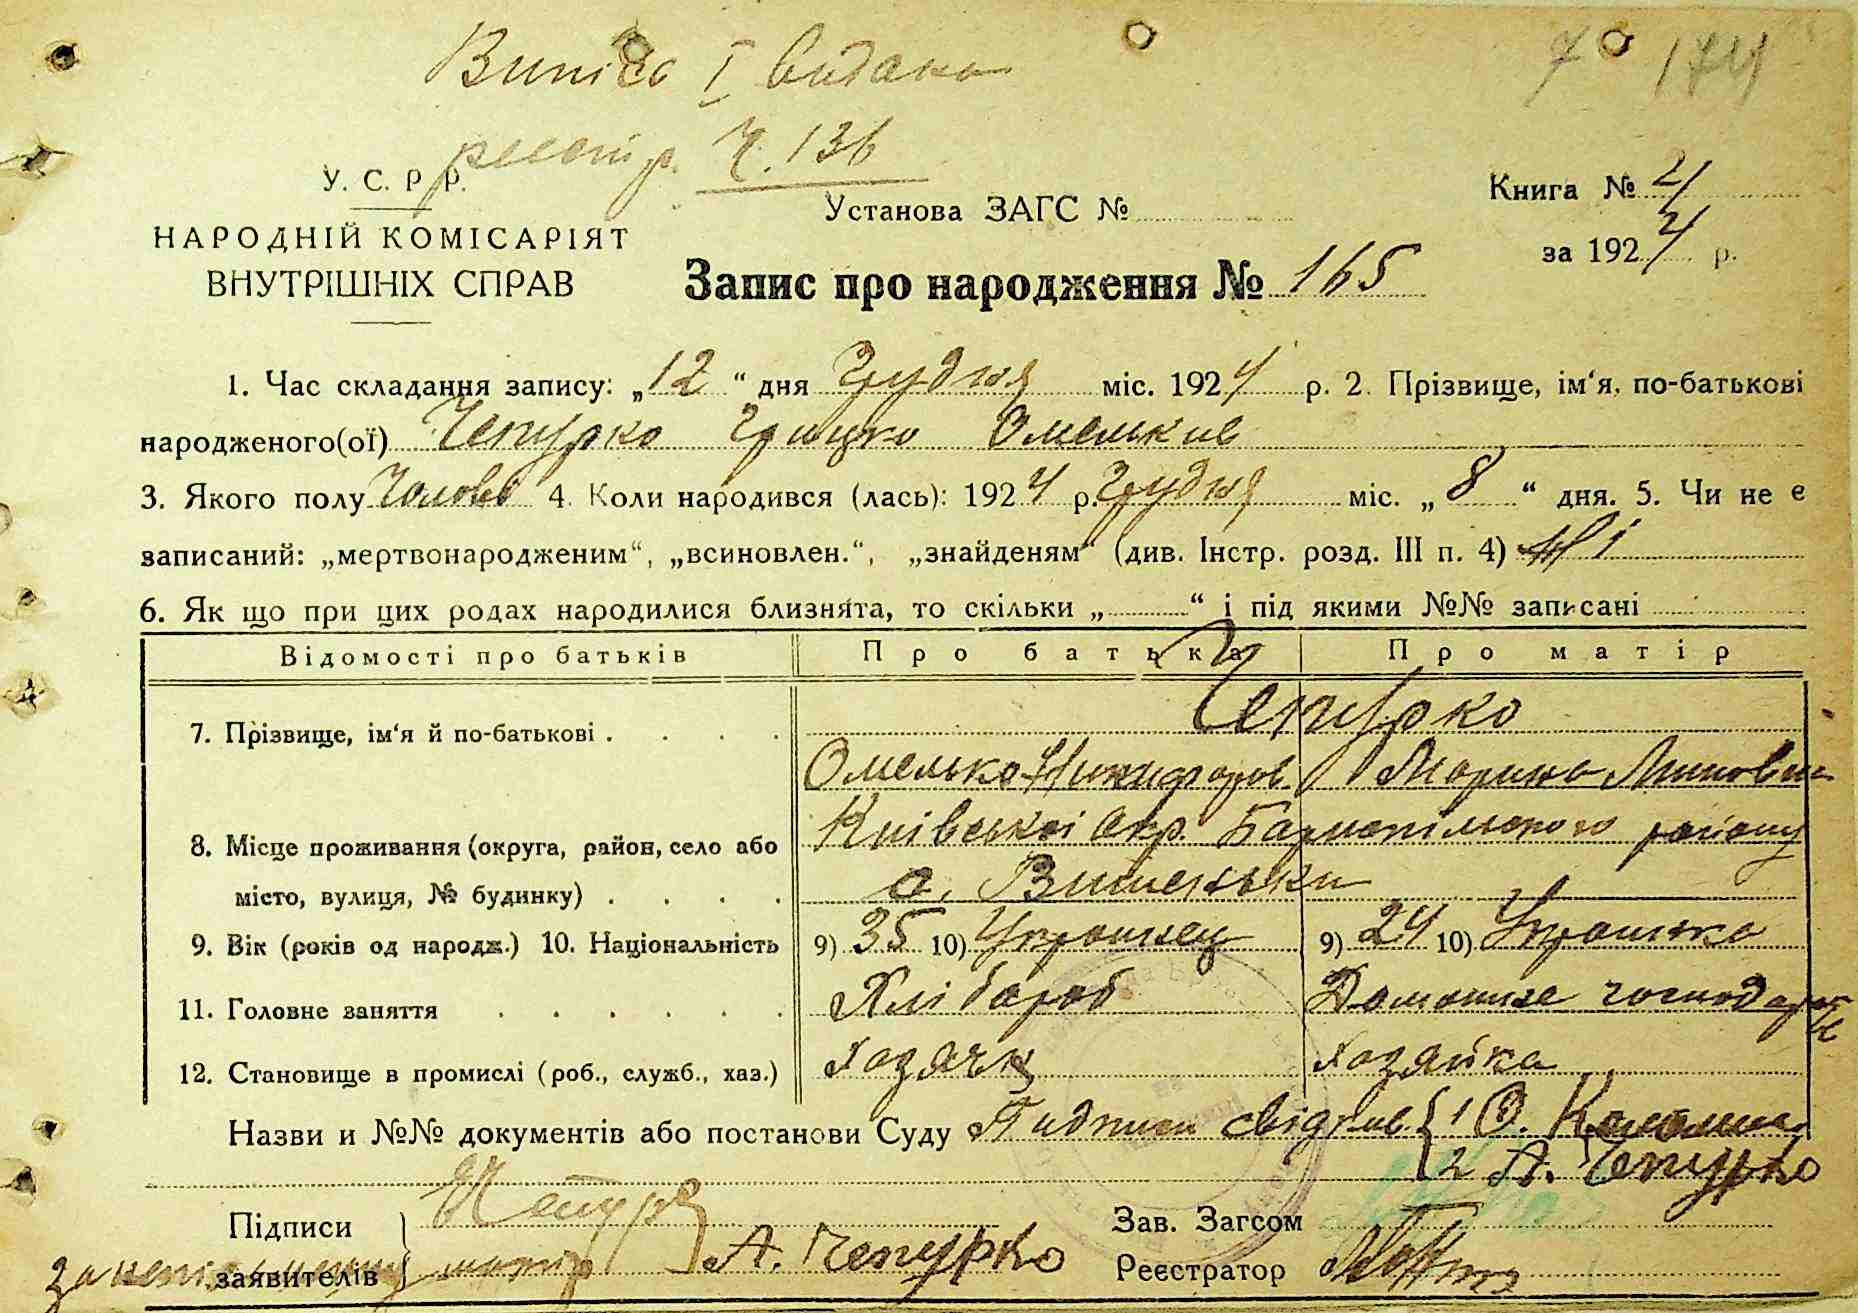 Випіс І видано
7 174
реєстр. Ч. 136
У. С. Р Р.
Установа ЗАГС №
Книга № 4
НАРОДНІЙ КОМІСАРІЯТ
за 1924 р.
ВНУТРІШНІХ СПРАВ
Запис про народження № 165
1. Час складання запису: „12“ дня Грудня міс. 1924 р. 2. Прізвище, ім‘я, по-батькові
народженого(ої) Чепурко Грицко Омельков
3. Якого полу Чолов 4. Коли народився (лась): 1924 р. Грудня міс. „8“ дня. 5. Чи не є
записаний: „мертвонародженим“, „всиновлен.“, „знайденям“ (див. Інстр. розд. III п. 4) Ні
6. Як що при цих родах народилися близнята, то скільки „ “ і під якими №№ записані
Відомості про батьків Про батька Про матір
7. Прізвище, ім‘я й по-батькові . . . . Чепурко
Омелько Никифоров Марина
8. Місце проживання (округа, район, село або Київської Окр. Бориспільского району
місто, вулиця, № будинку) . . . . с. Вишеньки
9. Вік (років од народж.) 10. Національність 9) 35 10) Украинец 9) 24 10) Украинка
11. Головне заняття . . . . . . Хлібороб Домашнє господарст
12. Становище в промислі (роб., служб., хаз.) Хозяїн Хозяйка
Назви и №№ документів або постанови Суду Підписи свідків { 1 О.
2 А. Чепурко
Підписи Чепур Зав. Загсом
заявителів } матір А. Чепурко Реєстратор